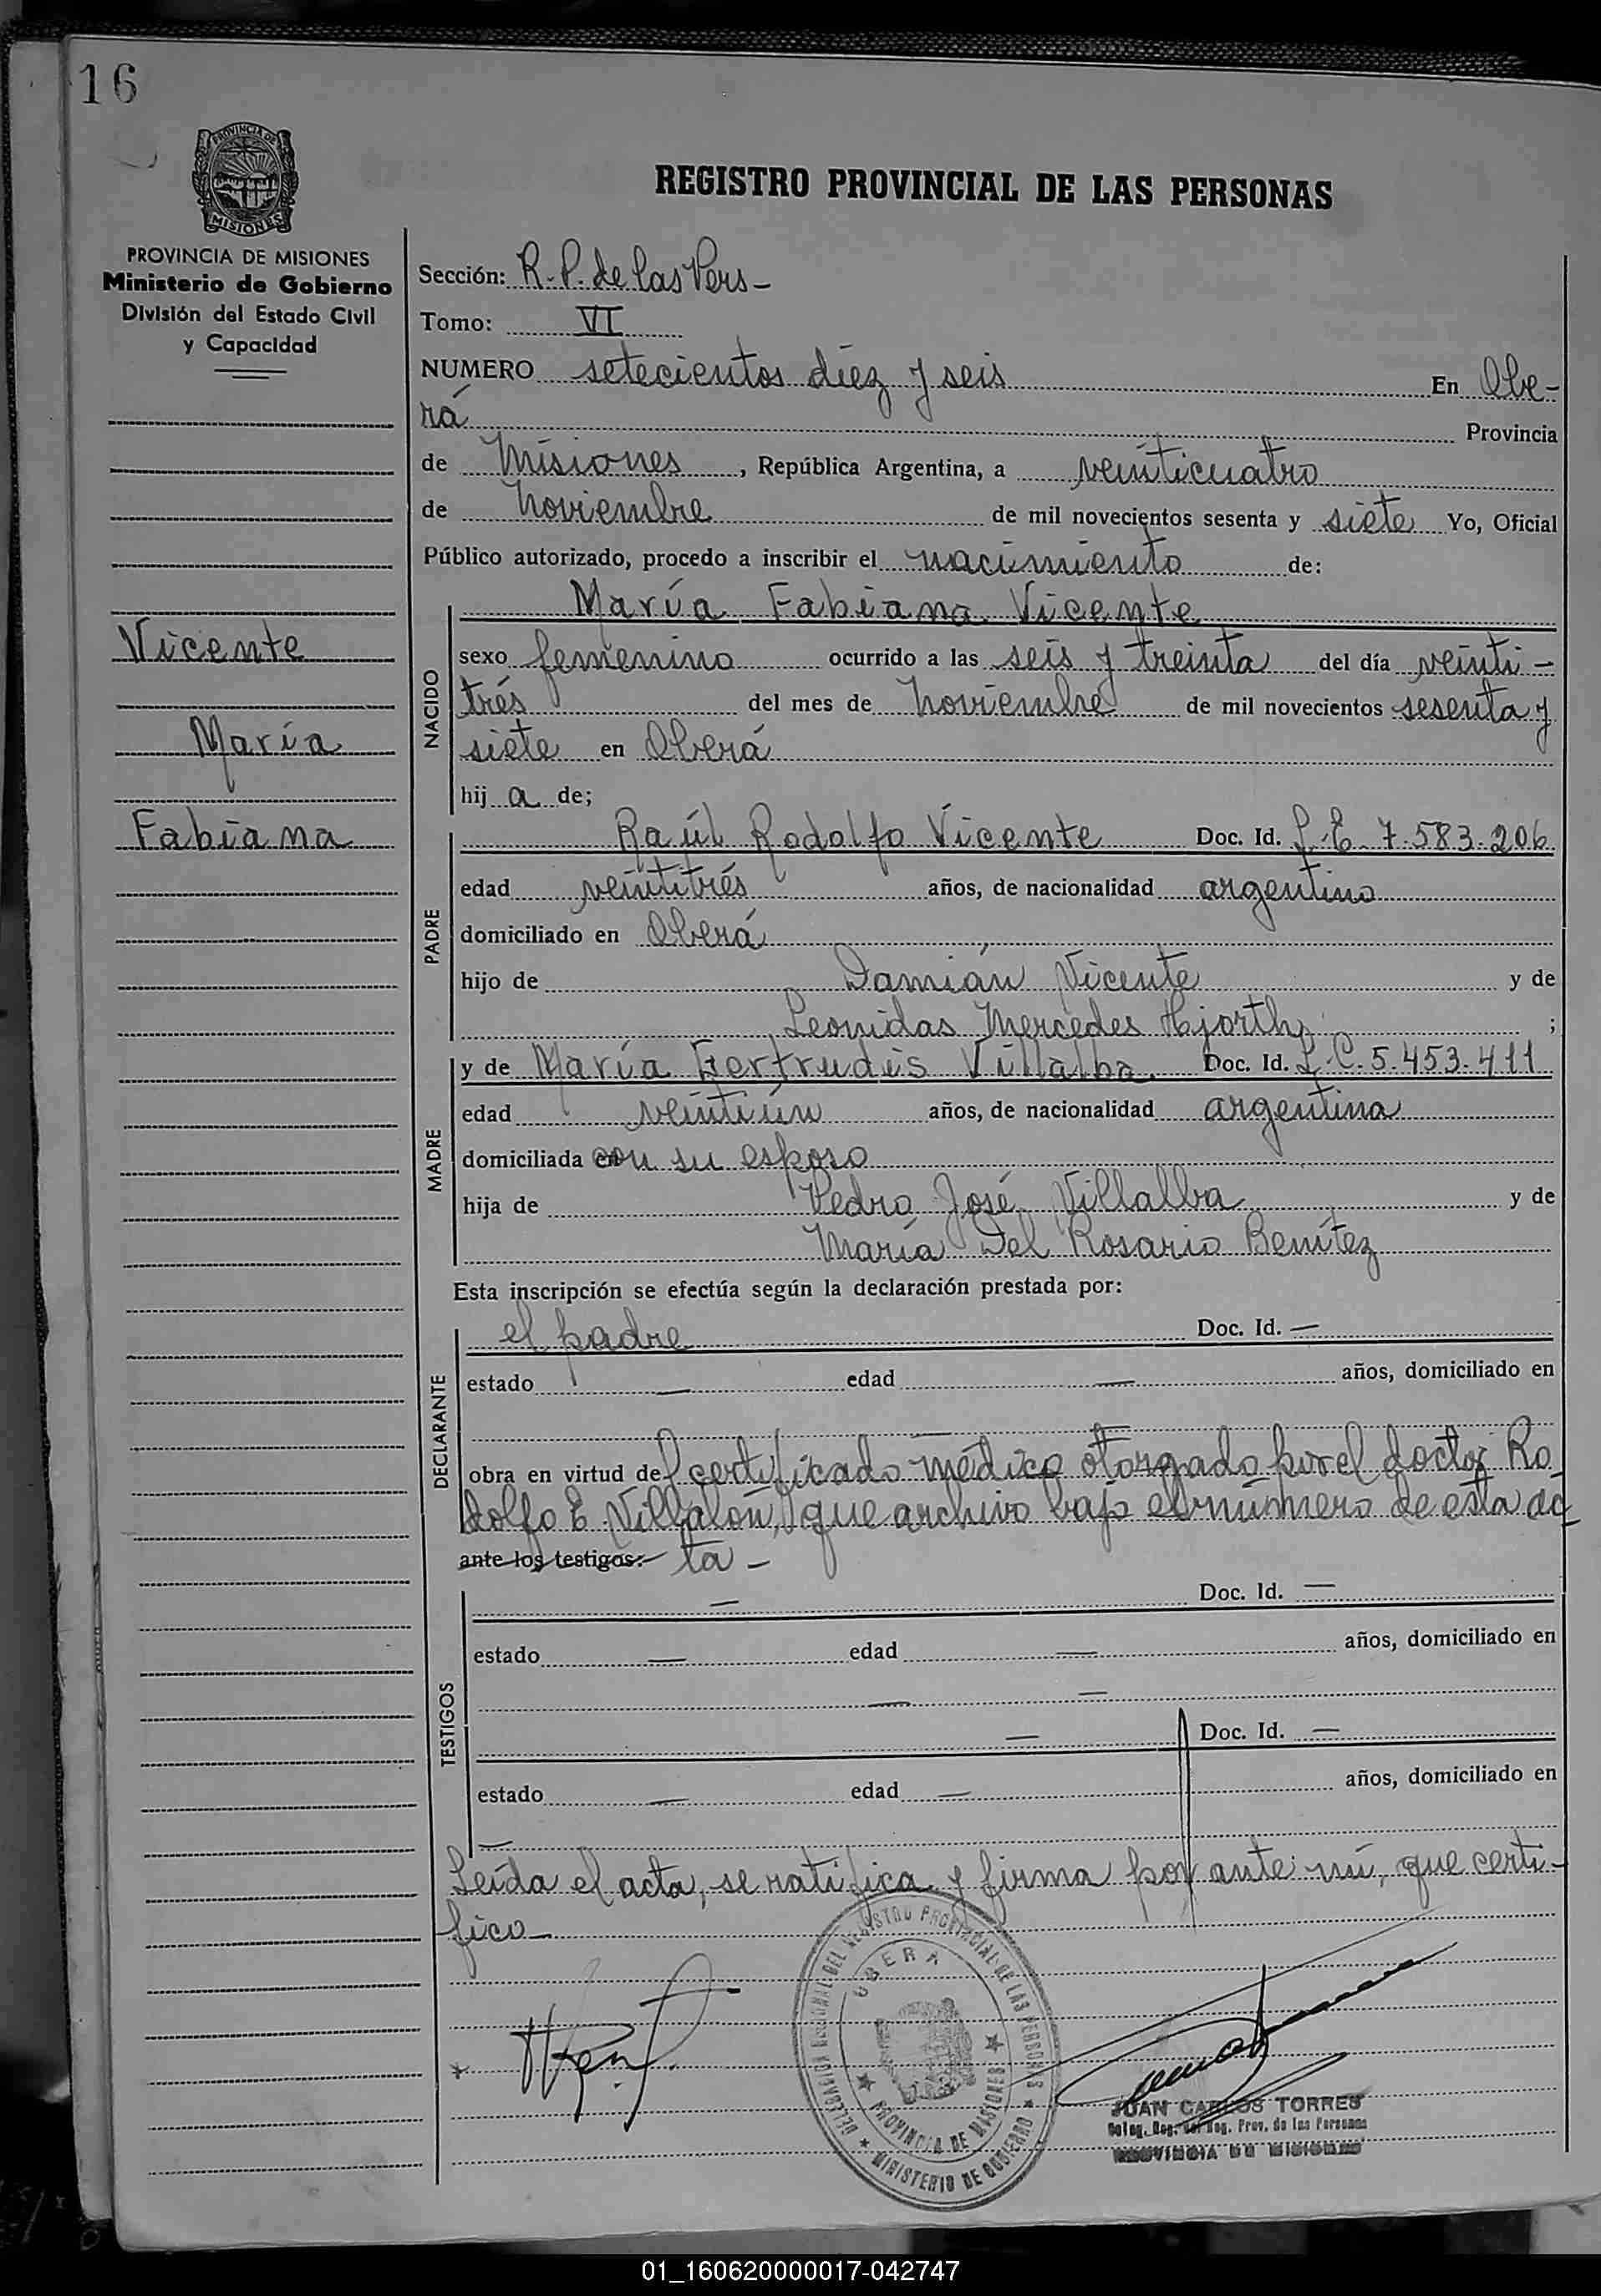 16
PROVINCIA DE
MISIONES
REGISTRO PROVINCIAL DE LAS PERSONAS
PROVINCIA DE MISIONES
Ministerio de Gobierno
División del Estado Civil
y Capacidad
Sección: R.P. de las Pers-
Tomo: VI
NUMERO setecientos diez y seis En Obe-
rá Provincia
de Misiones, República Argentina, a veinticuatro
de noviembre de mil novecientos sesenta y siete Yo, Oficial
Público autorizado, procedo a inscribir el nacimiento de:
María Fabiana Vicente
Vicente
María
Fabiana
NACIDO
sexo femenino ocurrido a las seis y treinta del día veinti-
trés del mes de noviembre de mil novecientos sesenta y
siete en Oberá
hija de;
PADRE
Raúl Rodolfo Vicente Doc. Id. L.E. 7.583.206
edad veintitrés años, de nacionalidad argentino
domiciliado en Oberá
hijo de Damián Vicente y de
Leonidas Mercedes Hjorth;
MADRE
y de María Gertrudis Villalba Doc. Id. L.C. 5.453.411
edad veintiún años, de nacionalidad argentina
domiciliada con su esposo
hija de Pedro José Villalba y de
María Del Rosario Benítez
Esta inscripción se efectúa según la declaración prestada por:
DECLARANTE
el padre Doc. Id. —
estado — edad — años, domiciliado en
—
obra en virtud del certificado médico otorgado por el doctor Ro-
dolfo E. Villalón, que archivo bajo el número de esta ac-
ante los testigos: ta-
TESTIGOS
— Doc. Id. —
estado — edad — años, domiciliado en
— —
— Doc. Id. —
estado — edad — años, domiciliado en
—
Leída el acta, se ratifica y firma por ante mí, que certi-
fico-
DELEGACION REGIONAL DEL REGISTRO PROVINCIAL DE LAS PERSONAS
MINISTERIO DE GOBIERNO
OBERA
PROVINCIA DE MISIONES
JUAN CARLOS TORRES
Deleg. Reg. del Reg. Prov. de las Personas
PROVINCIA DE MISIONES
01_160620000017-042747